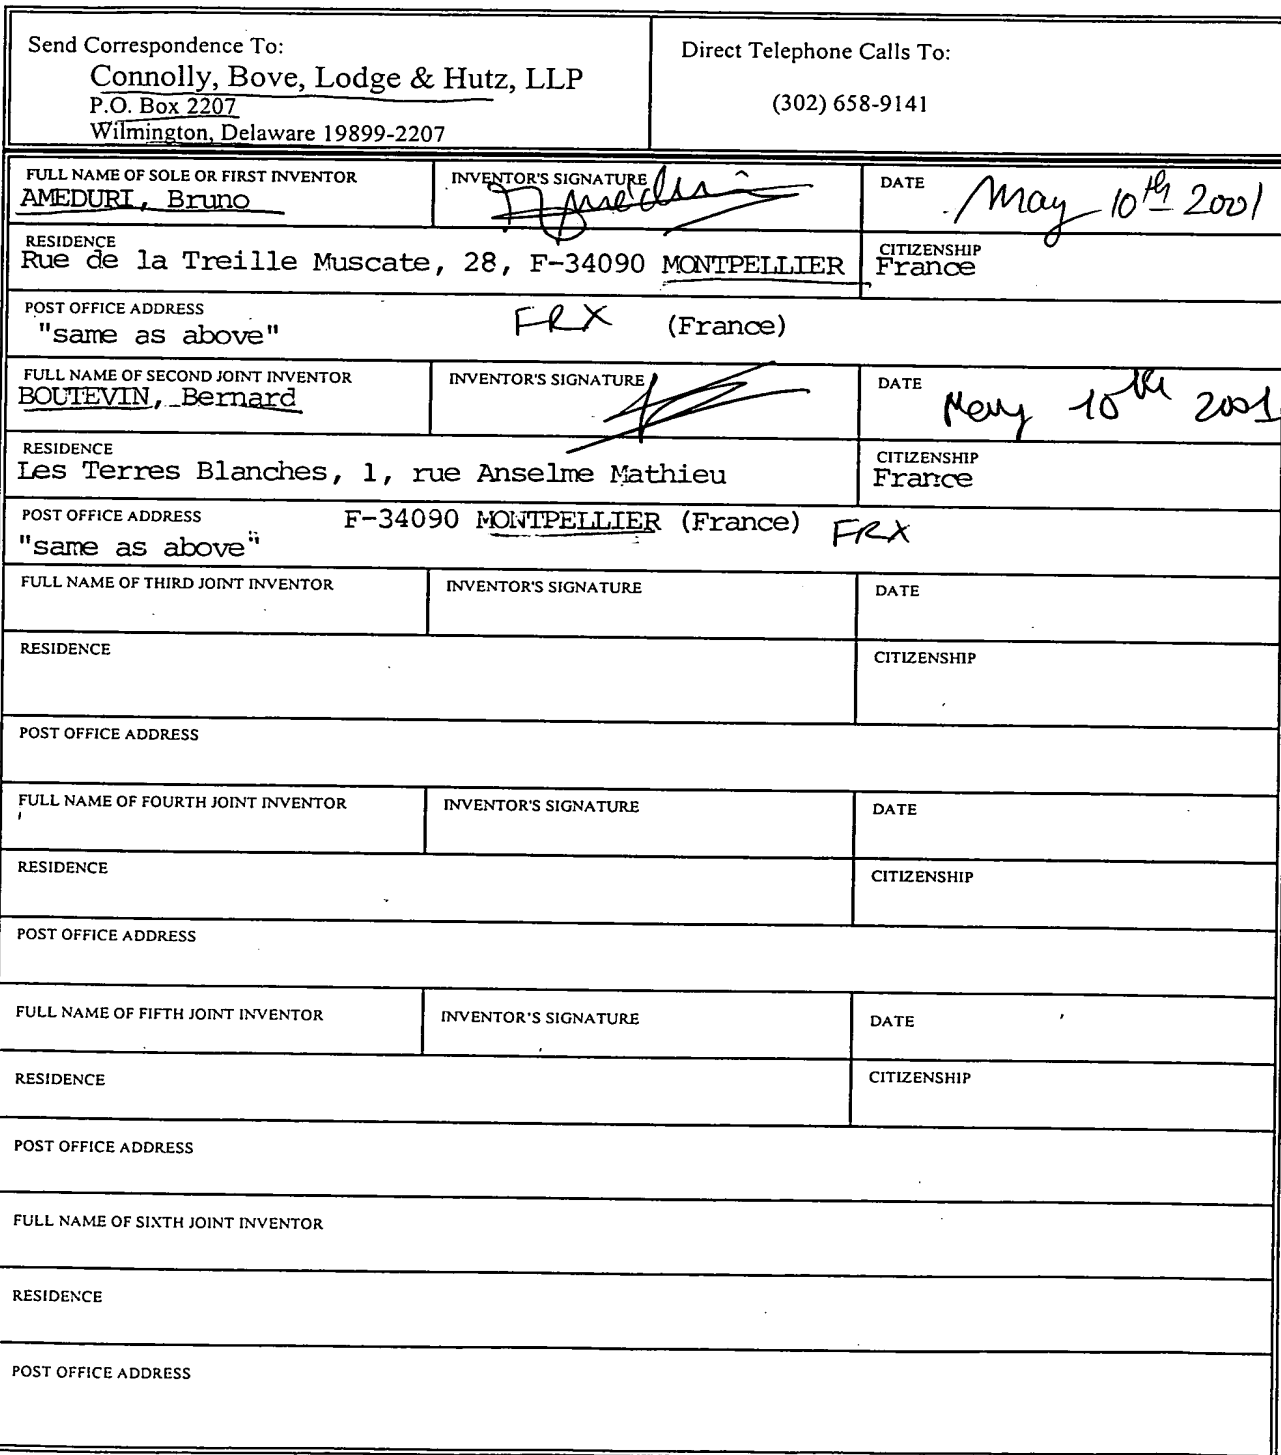 Send Correspondence To:
Connolly, Bove, Lodge & Hutz, LLP
P.O. Box 2207
Wilmington, Delaware 19899-2207
Direct Telephone Calls To:
(302) 658-9141
FULL NAME OF SOLE OR FIRST INVENTOR
AMEDURI, Bruno
INVENTOR'S SIGNATURE
DATE
May 10th 2001
RESIDENCE
Rue de la Treille Muscate, 28, F-34090 MONTPELLIER
CITIZENSHIP
France
POST OFFICE ADDRESS
"same as above"
FRX (France)
FULL NAME OF SECOND JOINT INVENTOR
BOUTEVIN, Bernard
INVENTOR'S SIGNATURE
DATE
May 10th 2001
RESIDENCE
Les Terres Blanches, 1, rue Anselme Mathieu
CITIZENSHIP
France
POST OFFICE ADDRESS
F-34090 MONTPELLIER (France) FRX
"same as above"
FULL NAME OF THIRD JOINT INVENTOR
INVENTOR'S SIGNATURE
DATE
RESIDENCE
CITIZENSHIP
POST OFFICE ADDRESS
FULL NAME OF FOURTH JOINT INVENTOR
INVENTOR'S SIGNATURE
DATE
RESIDENCE
CITIZENSHIP
POST OFFICE ADDRESS
FULL NAME OF FIFTH JOINT INVENTOR
INVENTOR'S SIGNATURE
DATE
RESIDENCE
CITIZENSHIP
POST OFFICE ADDRESS
FULL NAME OF SIXTH JOINT INVENTOR
RESIDENCE
POST OFFICE ADDRESS